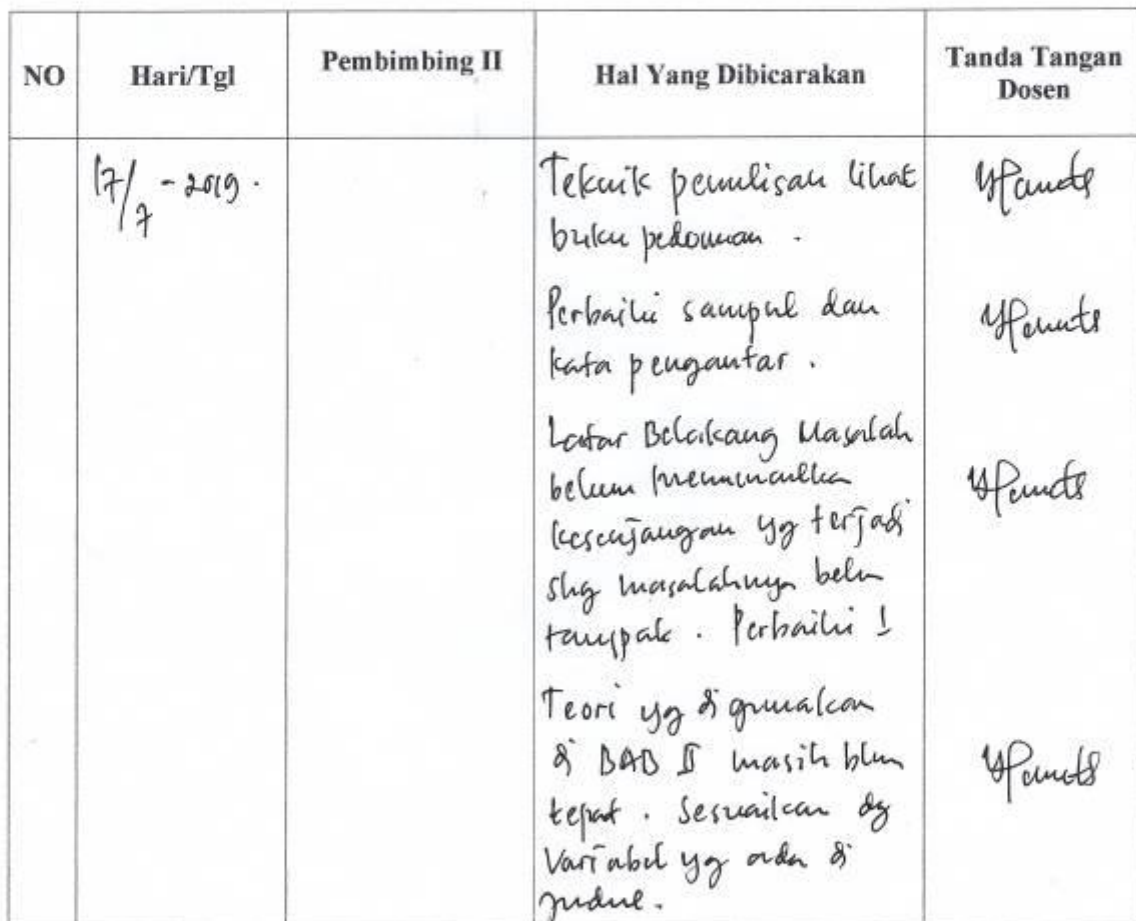 NO Hari/Tgl Pembimbing II Hal Yang Dibicarakan Tanda Tangan
Dosen
17/7 - 2019. Teknik penulisan lihat
buku pedoman .
Perbaiki sampul dan
kata pengantar .
Latar Belakang Masalah
belum memunculkan
kesenjangan yg terjadi
shg masalahnya belum
tampak . Perbaiki !
Teori yg digunakan
di BAB II masih blum
tepat . Sesuaikan dg
Variabel yg ada di
judul .